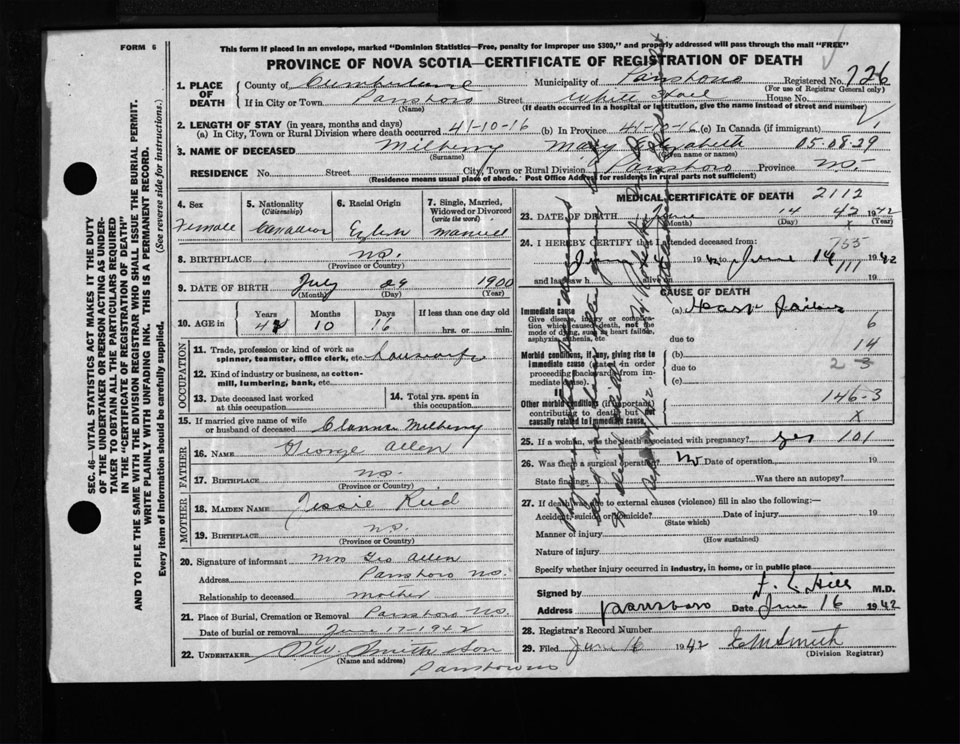 FORM 6
This form if placed in an envelope, marked "Dominion Statistics—Free, penalty for improper use $300," and properly addressed will pass through the mail "FREE"
PROVINCE OF NOVA SCOTIA—CERTIFICATE OF REGISTRATION OF DEATH
1. PLACE OF DEATH County of Cumberland Municipality of Parrsboro Registered No. 726
(For use of Registrar General only)
If in City or Town Parrsboro Street White Hall House No.
(Name) (If death occurred in a hospital or institution, give the name instead of street and number)
2. LENGTH OF STAY (in years, months and days)
(a) In City, Town or Rural Division where death occurred 41-10-16 (b) In Province 41-10-16 (c) In Canada (if immigrant)
3. NAME OF DECEASED Milberry Mary Elizabeth 05.08.29
(Surname) (Given name or names)
RESIDENCE No. Street City, Town or Rural Division Parrsboro Province N.S.
(Residence means usual place of abode. Post Office Address for residents in rural parts not sufficient)
4. Sex Female
5. Nationality (Citizenship) Canadian
6. Racial Origin English
7. Single, Married, Widowed or Divorced (write the word) Married
8. BIRTHPLACE N.S.
(Province or Country)
9. DATE OF BIRTH July 29 1900
(Month) (Day) (Year)
10. AGE in Years 41 Months 10 Days 16 If less than one day old hrs. or min.
OCCUPATION
11. Trade, profession or kind of work as spinner, teamster, office clerk, etc. housewife
12. Kind of industry or business, as cotton-mill, lumbering, bank, etc.
13. Date deceased last worked at this occupation
14. Total yrs. spent in this occupation
15. If married give name of wife or husband of deceased Clarence Milberry
FATHER
16. NAME George Allen
17. BIRTHPLACE N.S.
(Province or Country)
MOTHER
18. MAIDEN NAME Jessie Reid
19. BIRTHPLACE N.S.
(Province or Country)
20. Signature of informant Mrs Geo Allen
Address Parrsboro N.S.
Relationship to deceased mother
21. Place of Burial, Cremation or Removal Parrsboro N.S.
Date of burial or removal June 17-1942
22. UNDERTAKER Smith & Son
(Name and address)
Parrsboro N.S.
MEDICAL CERTIFICATE OF DEATH 2112
23. DATE OF DEATH June 14 1942
(Month) (Day)
24. I HEREBY CERTIFY that I attended deceased from:
755
June 19 to June 14 1942
and last saw h alive 111 19
CAUSE OF DEATH
Immediate cause
Give disease, injury or complication which caused death, not the mode of dying, such as heart failure, asphyxia, asthenia, etc
(a) Heart Failure
6
due to
14
Morbid conditions, if any, giving rise to immediate cause (stated in order proceeding backward from immediate cause).
(b)
2 3
due to
(c)
Other morbid conditions (if important) contributing to death but not causally related to immediate cause.
146-3
X
25. If a woman, was the death associated with pregnancy? yes 101
26. Was there a surgical operation? No Date of operation 19
State findings Was there an autopsy?
27. If death was due to external causes (violence) fill in also the following:—
Accident, suicide or homicide? Date of injury 19
(State which)
Manner of injury
(How sustained)
Nature of injury
Specify whether injury occurred in industry, in home, or in public place
Signed by F. L. Hill M.D.
Address Parrsboro Date June 16 1942
28. Registrar's Record Number
29. Filed June 16 1942 E M Smith
(Division Registrar)
SEC. 46—VITAL STATISTICS ACT MAKES IT THE DUTY
OF THE UNDERTAKER OR PERSON ACTING AS UNDER-
TAKER TO OBTAIN ALL THE PARTICULARS REQUIRED
IN THE "CERTIFICATE OF REGISTRATION OF DEATH"
AND TO FILE THE SAME WITH THE DIVISION REGISTRAR WHO SHALL ISSUE THE BURIAL PERMIT.
WRITE PLAINLY WITH UNFADING INK. THIS IS A PERMANENT RECORD.
Every item of information should be carefully supplied. (See reverse side for instructions.)